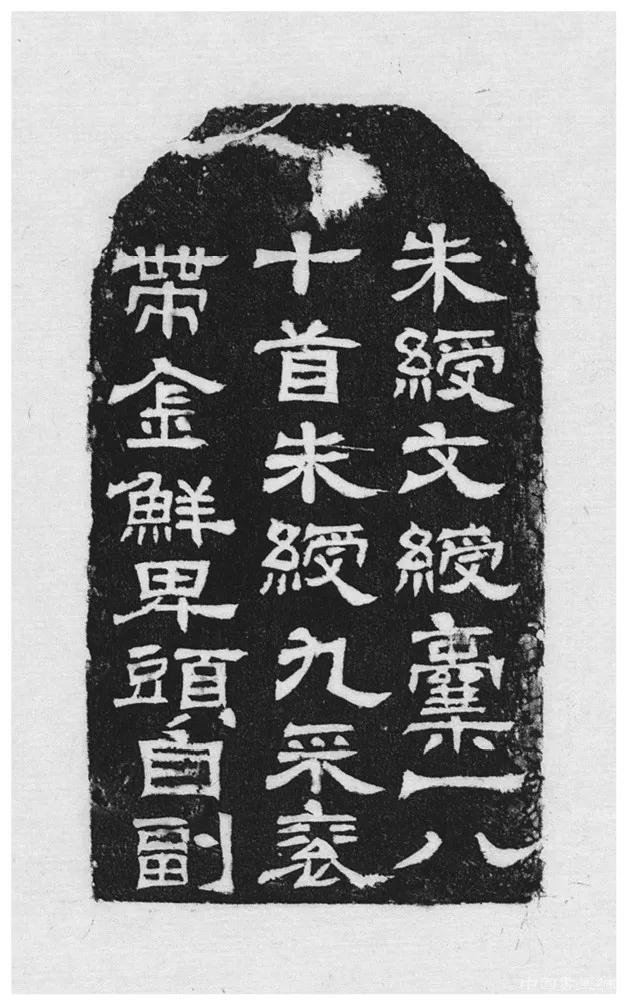 朱綬文綬囊一八
十首朱綬九采衮
帶金鮮卑頭自副